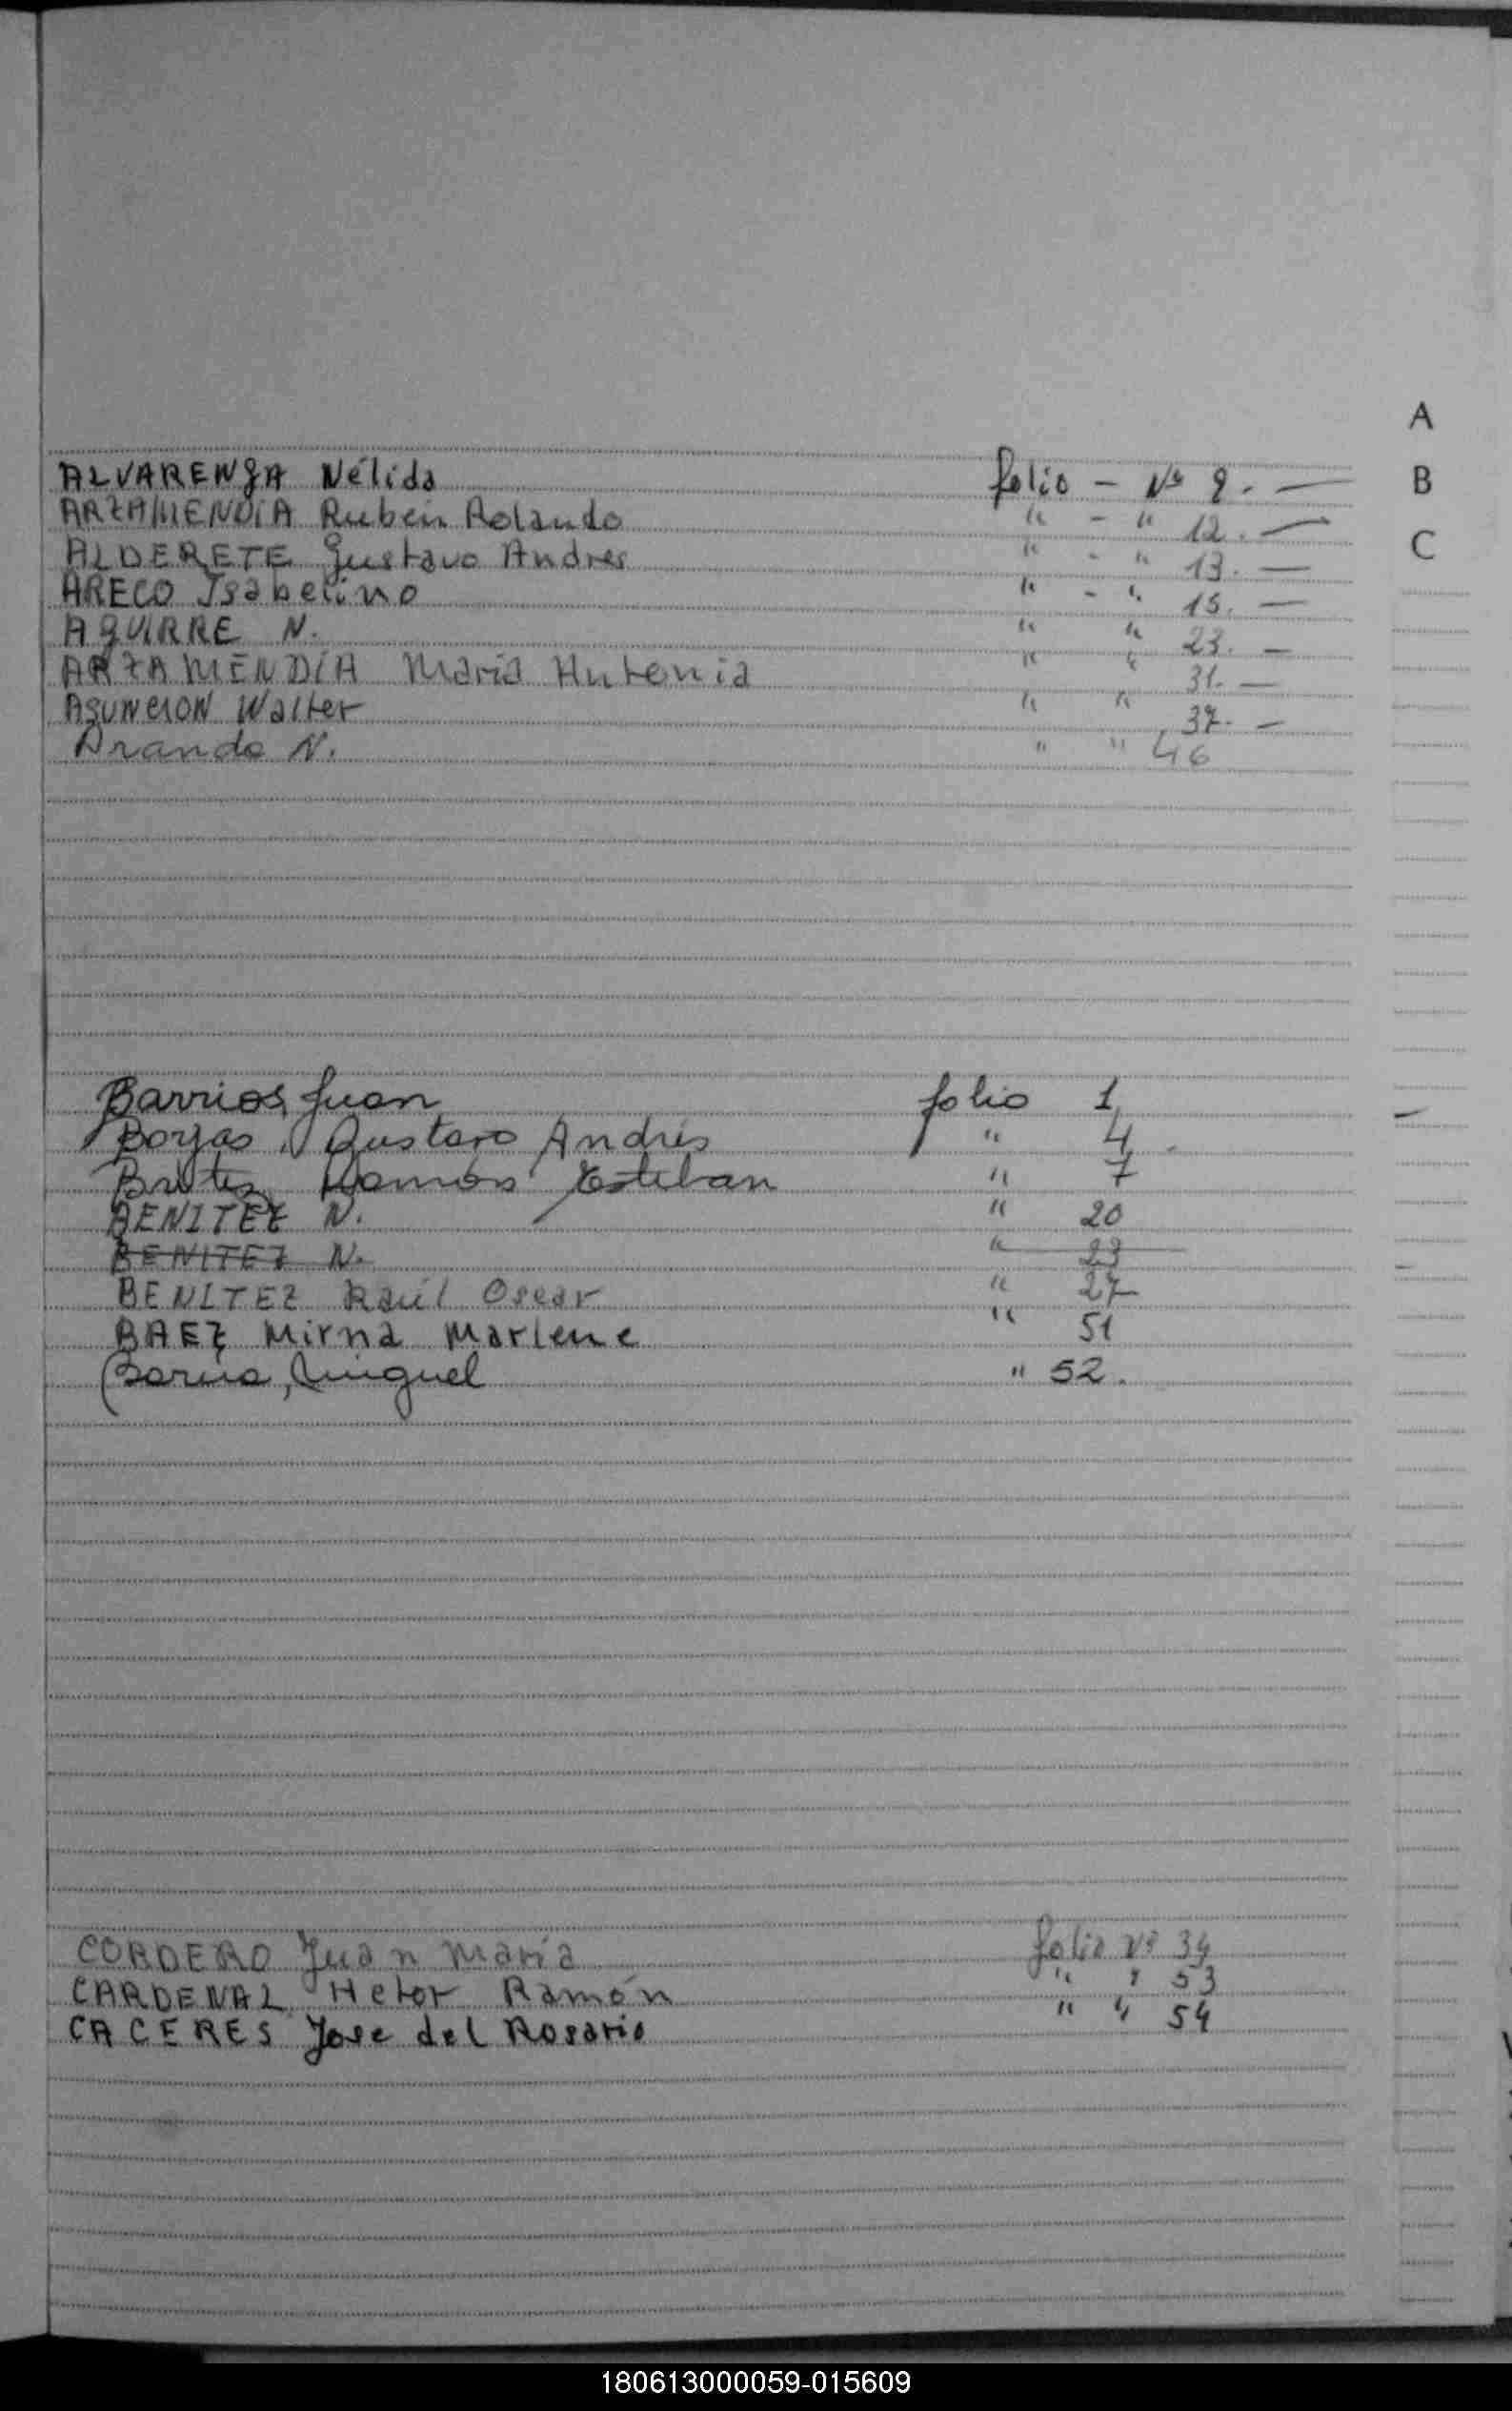 A
B
C
ALVARENGA Nélida folio - Nº 9. —
ARZAMENDIA Ruben Rolando " - " 12. —
ALDERETE Gustavo Andres " - " 13. —
ARECO Isabelino " - " 15. —
AGUIRRE N. " " 23. —
ARZAMENDÍA Maria Antonia " " 31. —
ASUNCION Walter " " 37. —
N. " " 46
Barrios, Juan folio 1
Borjas, Gustavo Andrés " 4.
Britez Ramón Esteban " 7
BENITEZ N. " 20
BENITEZ N. " 23
BENITEZ Raúl Oscar " 27
BAEZ Mirna Marlene " 51
Miguel " 52.
CORDERO Juan María folio Nº 34
CARDENAL Hetor Ramón " " 53
CACERES Jose del Rosario " " 54
180613000059-015609